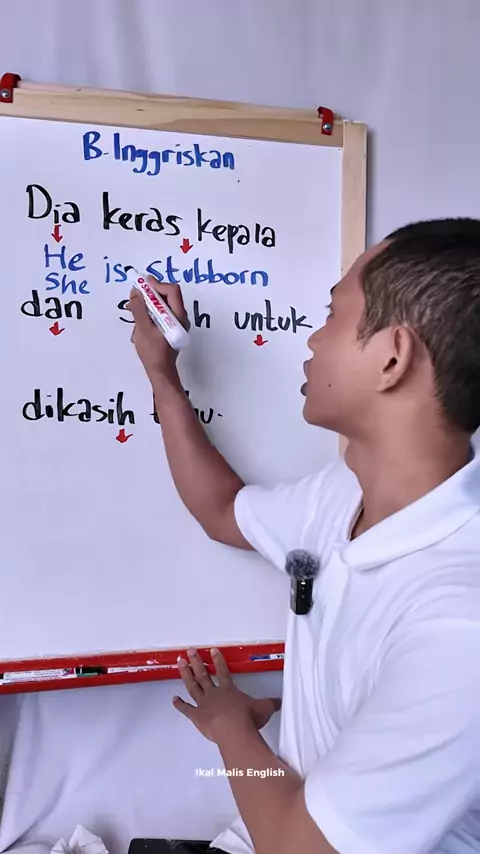 B. Inggriskan
Dia keras kepala
He is stubborn
She
dan untuk
dikasih
Ikal Malis English